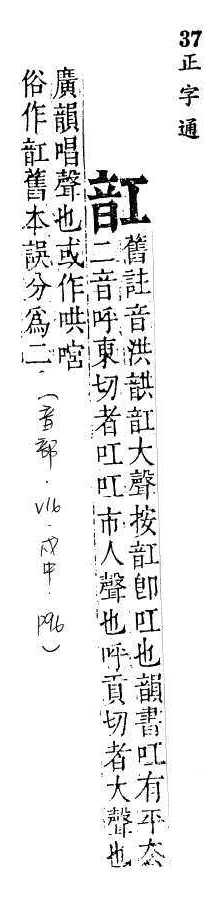 37 正字通
䪦
舊註音洪䪫䪦大聲按䪦卽叿也韻書叿有平去
二音呼東切者叿叿市人聲也呼貢切者大聲也
廣韻唱聲也或作哄啌
俗作䪦舊本誤分爲二
(音部.V16.戌中.P96)